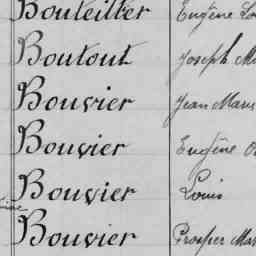 Bouteiller Eugène
Boutout Joseph
Bouvier Jean Marie
Bouvier Eugène
Bouvier Louis
Bouvier Prosper